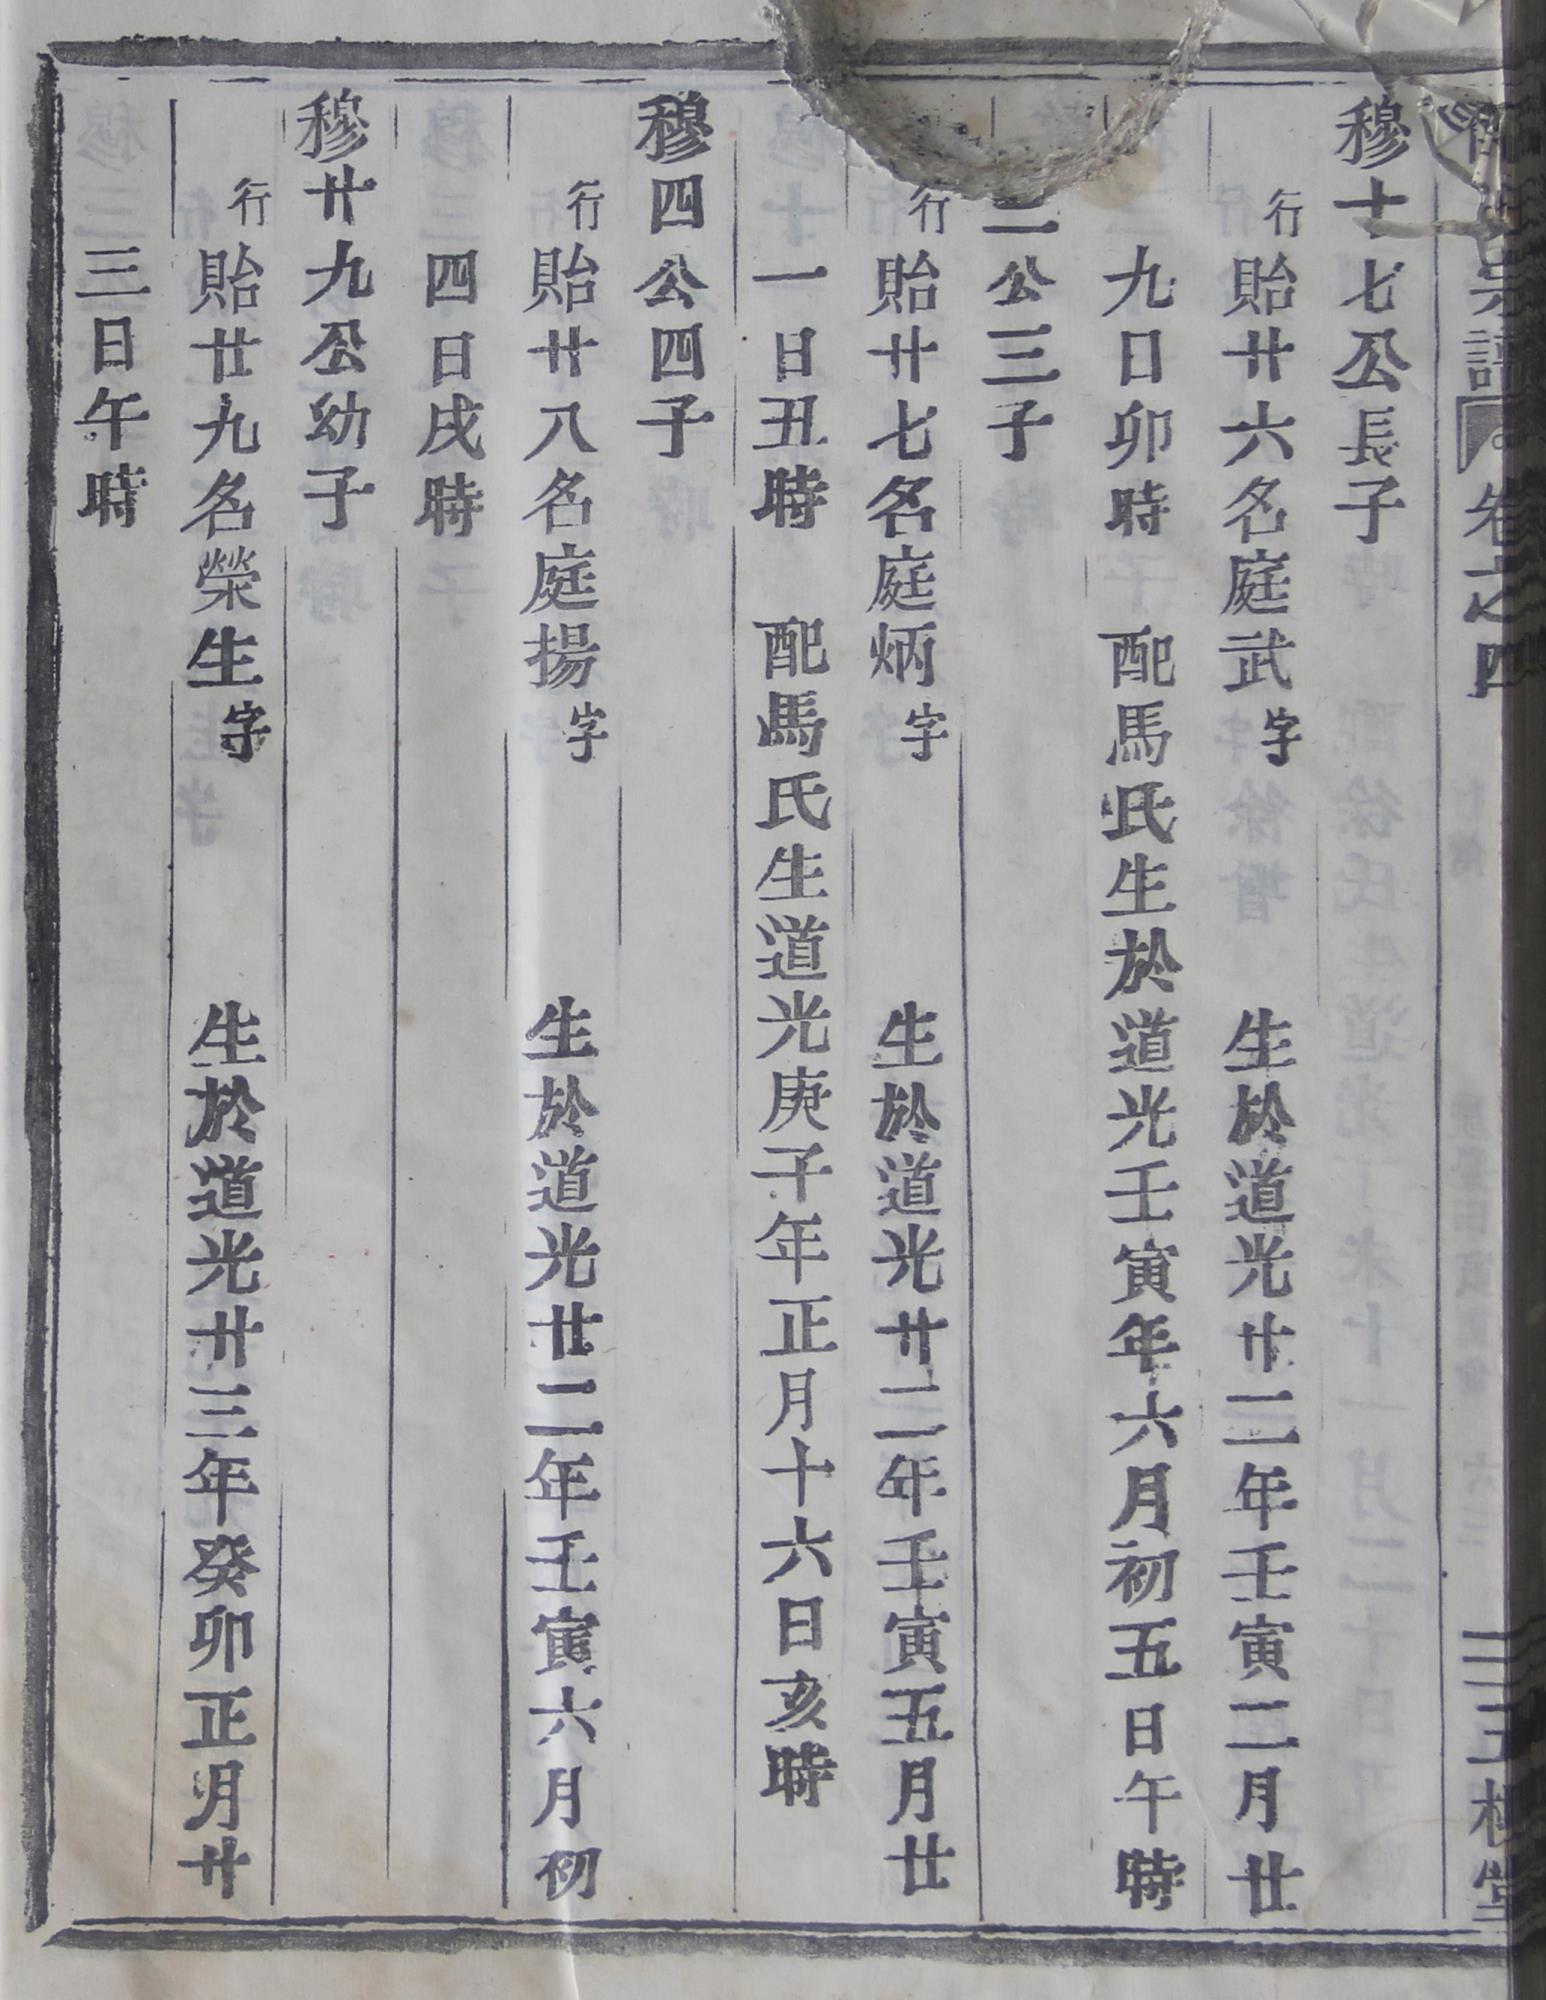 宗譜 卷之四 三王槐堂
穆十七公長子
行貽廿六名庭武字 生於道光廿二年壬寅二月廿
九日卯時 配馬氏生於道光壬寅年六月初五日午時
二公三子
行貽廿七名庭炳字 生於道光廿二年壬寅五月廿
一日丑時 配馬氏生道光庚子年正月十六日亥時
穆四公四子
行貽廿八名庭揚字 生於道光廿二年壬寅六月初
四日戌時
穆廿九公幼子
行貽廿九名榮生字 生於道光廿三年癸卯正月廿
三日午時